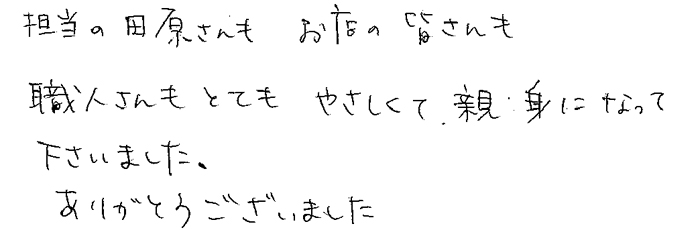 担当の田原さんも お店の皆さんも
職人さんもとても やさしくて、親身になって
下さいました。
ありがとうございました